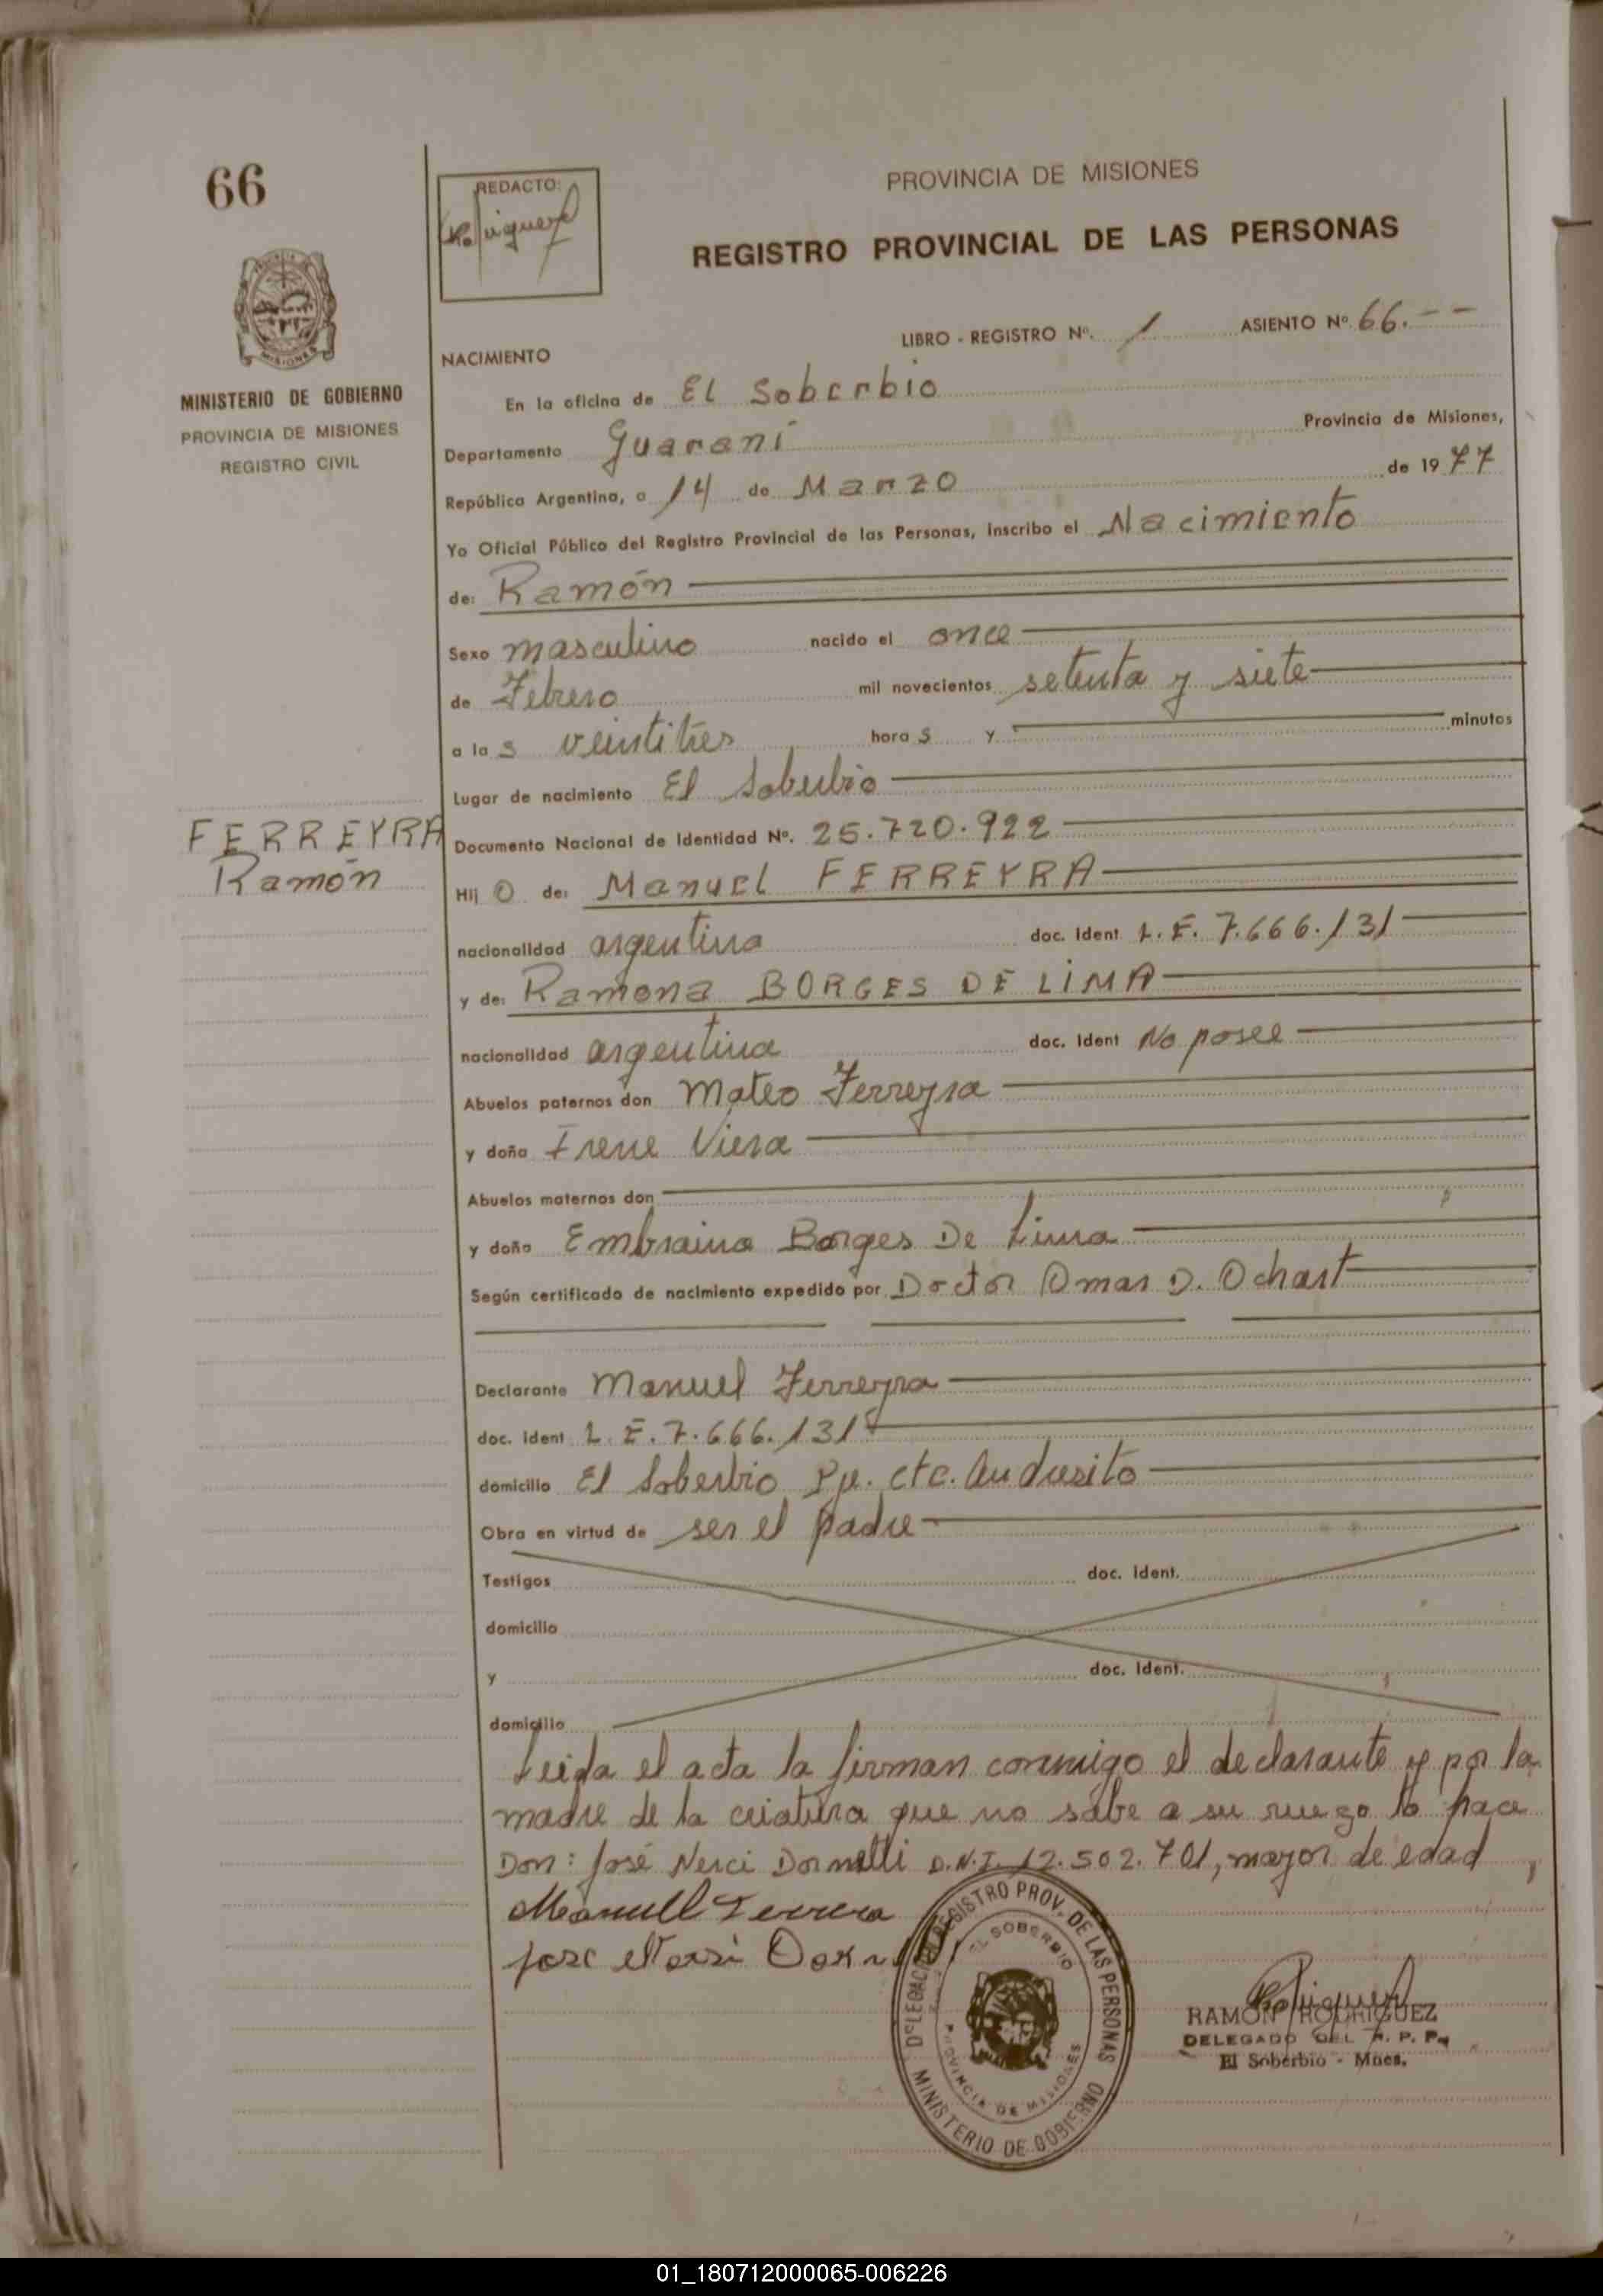 66
REDACTO:
PROVINCIA DE MISIONES
REGISTRO PROVINCIAL DE LAS PERSONAS
MISIONES
MINISTERIO DE GOBIERNO
PROVINCIA DE MISIONES
REGISTRO CIVIL
LIBRO - REGISTRO Nº. 1 ASIENTO Nº 66.--
NACIMIENTO
En la oficina de El Soberbio
Departamento Guaraní Provincia de Misiones,
República Argentina, a 14 de Marzo de 1977
Yo Oficial Público del Registro Provincial de las Personas, inscribo el Nacimiento
de: Ramón
Sexo masculino nacido el once
de Febrero mil novecientos setenta y siete
a la s veintitres hora s y minutos
Lugar de nacimiento El Soberbio
FERREYRA
Ramón
Documento Nacional de Identidad Nº. 25.720.922
Hij o de: Manuel FERREYRA
nacionalidad argentina doc. Ident L.E. 7.666.131
y de: Ramona BORGES DE LIMA
nacionalidad argentina doc. Ident No posee
Abuelos paternos don Mateo Ferreyra
y doña Irene Viera
Abuelos maternos don
y doña Embraina Borges De Lima
Según certificado de nacimiento expedido por Doctor Omar D. Ochart
Declarante Manuel Ferreyra
doc. Ident L.E. 7.666.131
domicilio El Soberbio cte. Andresito
Obra en virtud de ser el padre
Testigos doc. Ident.
domicilio
y doc. Ident.
domicilio
Leida el acta la firman conmigo el declarante y por la
madre de la criatura que no sabe a su ruego lo hace
Don: José Nerci Dornelli D.N.I. 12.502.701, mayor de edad
Manuell Ferrera
Jose
DELEGACION REGISTRO PROV. DE LAS PERSONAS
EL SOBERBIO
PROVINCIA DE MISIONES
MINISTERIO DE GOBIERNO
RAMON RODRIGUEZ
DELEGADO DEL R. P. P.
El Soberbio - Mnes.
01_180712000065-006226